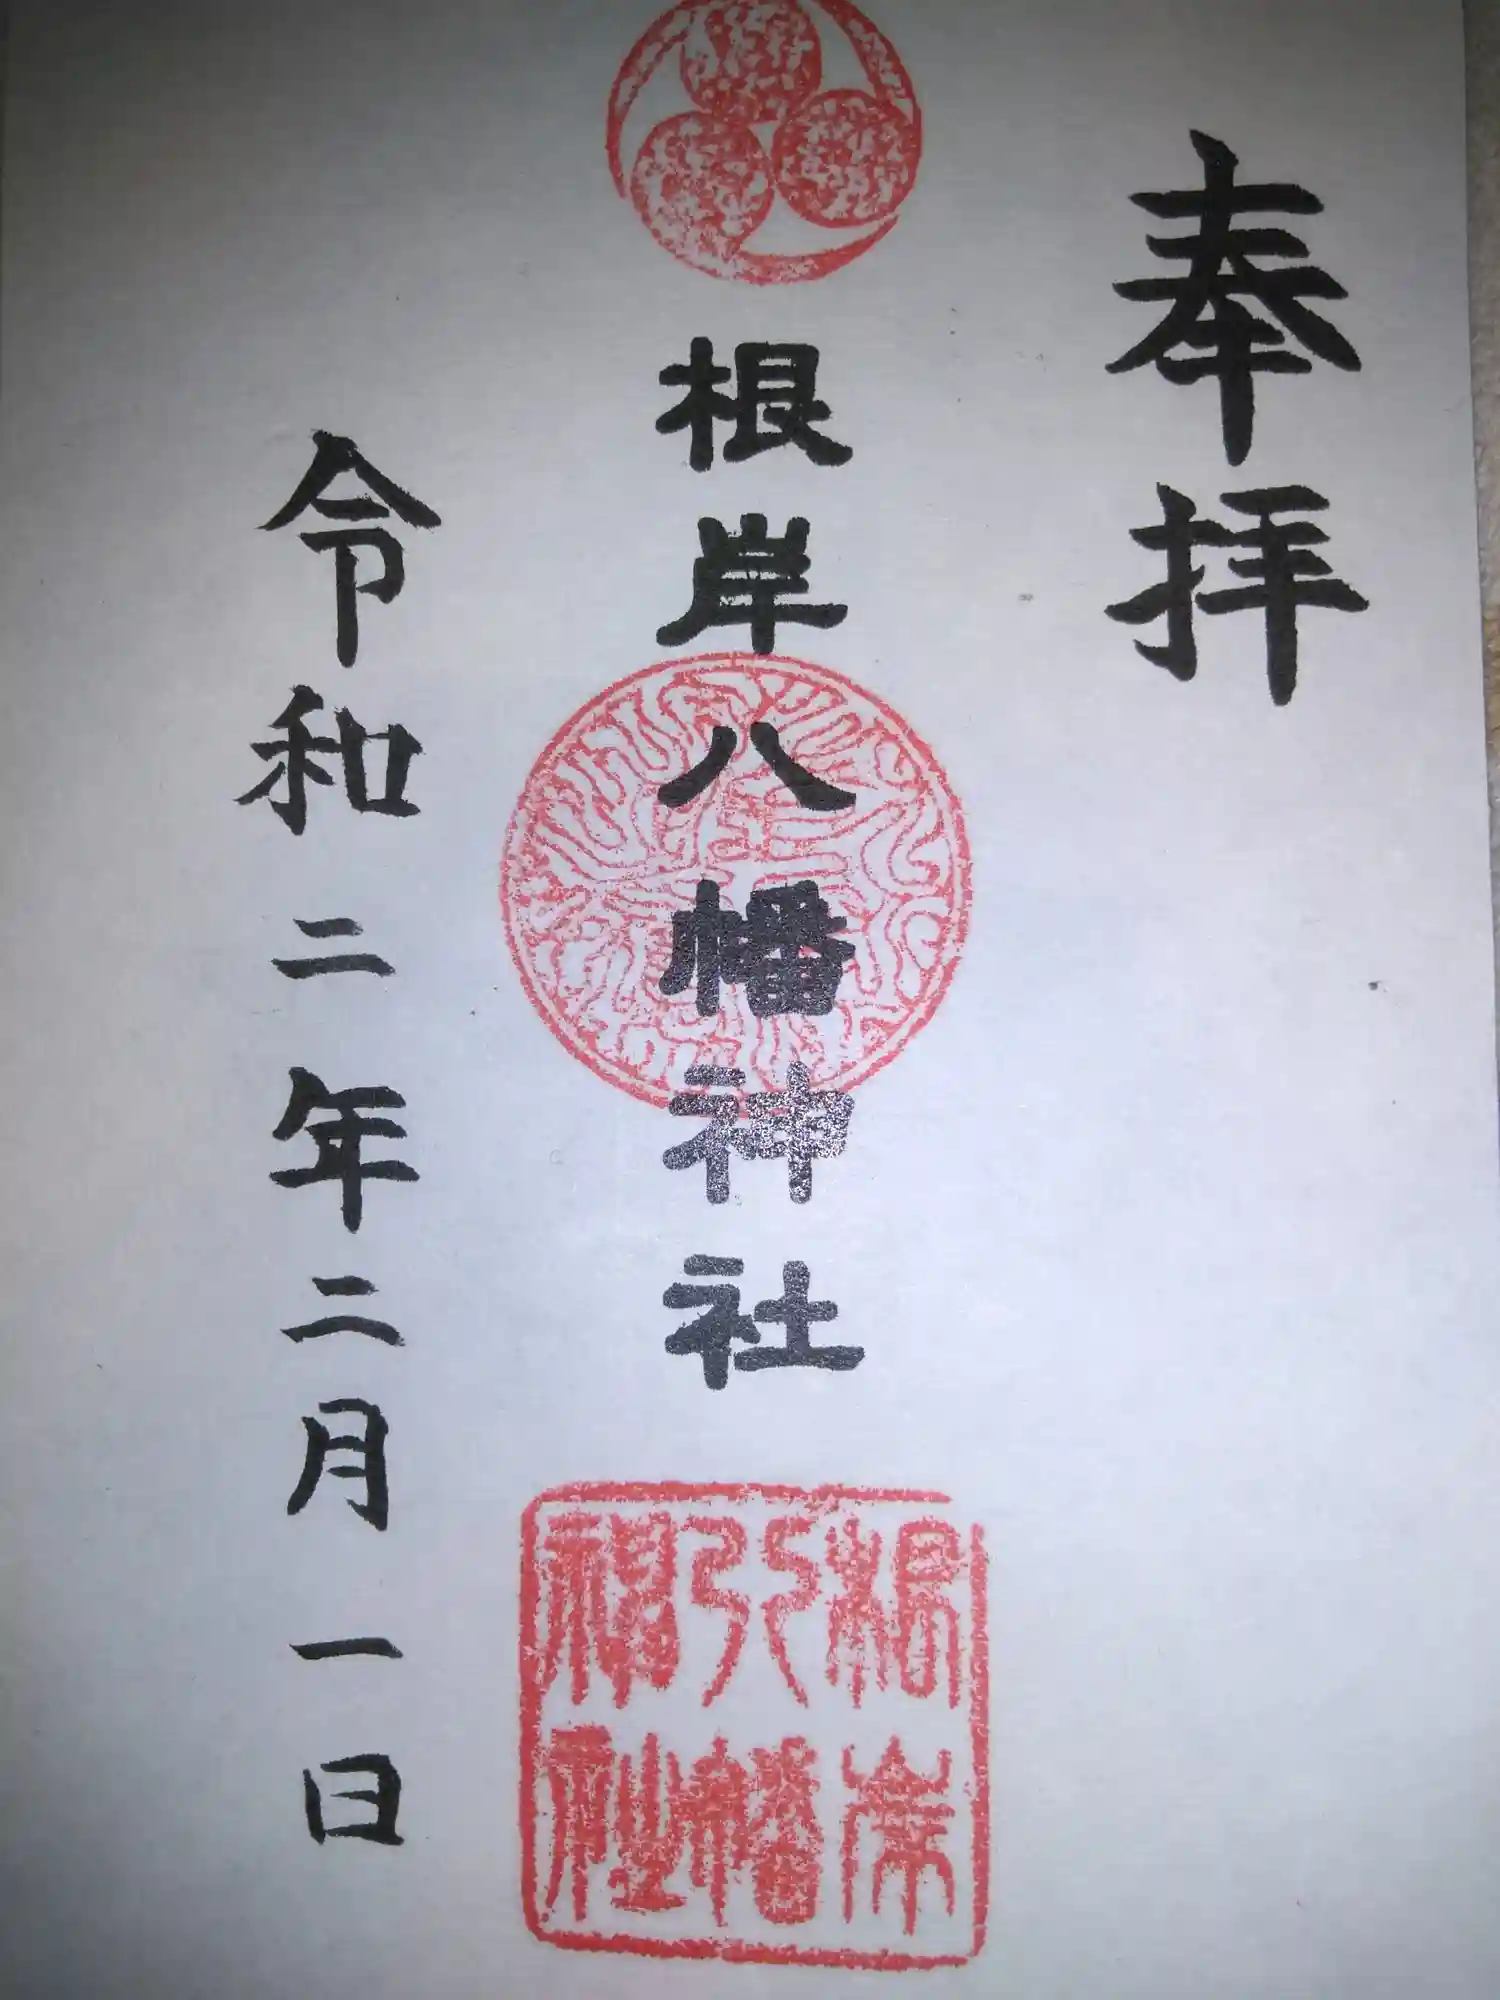 奉拝
根岸八幡神社
根岸八幡神社
令和二年二月一日